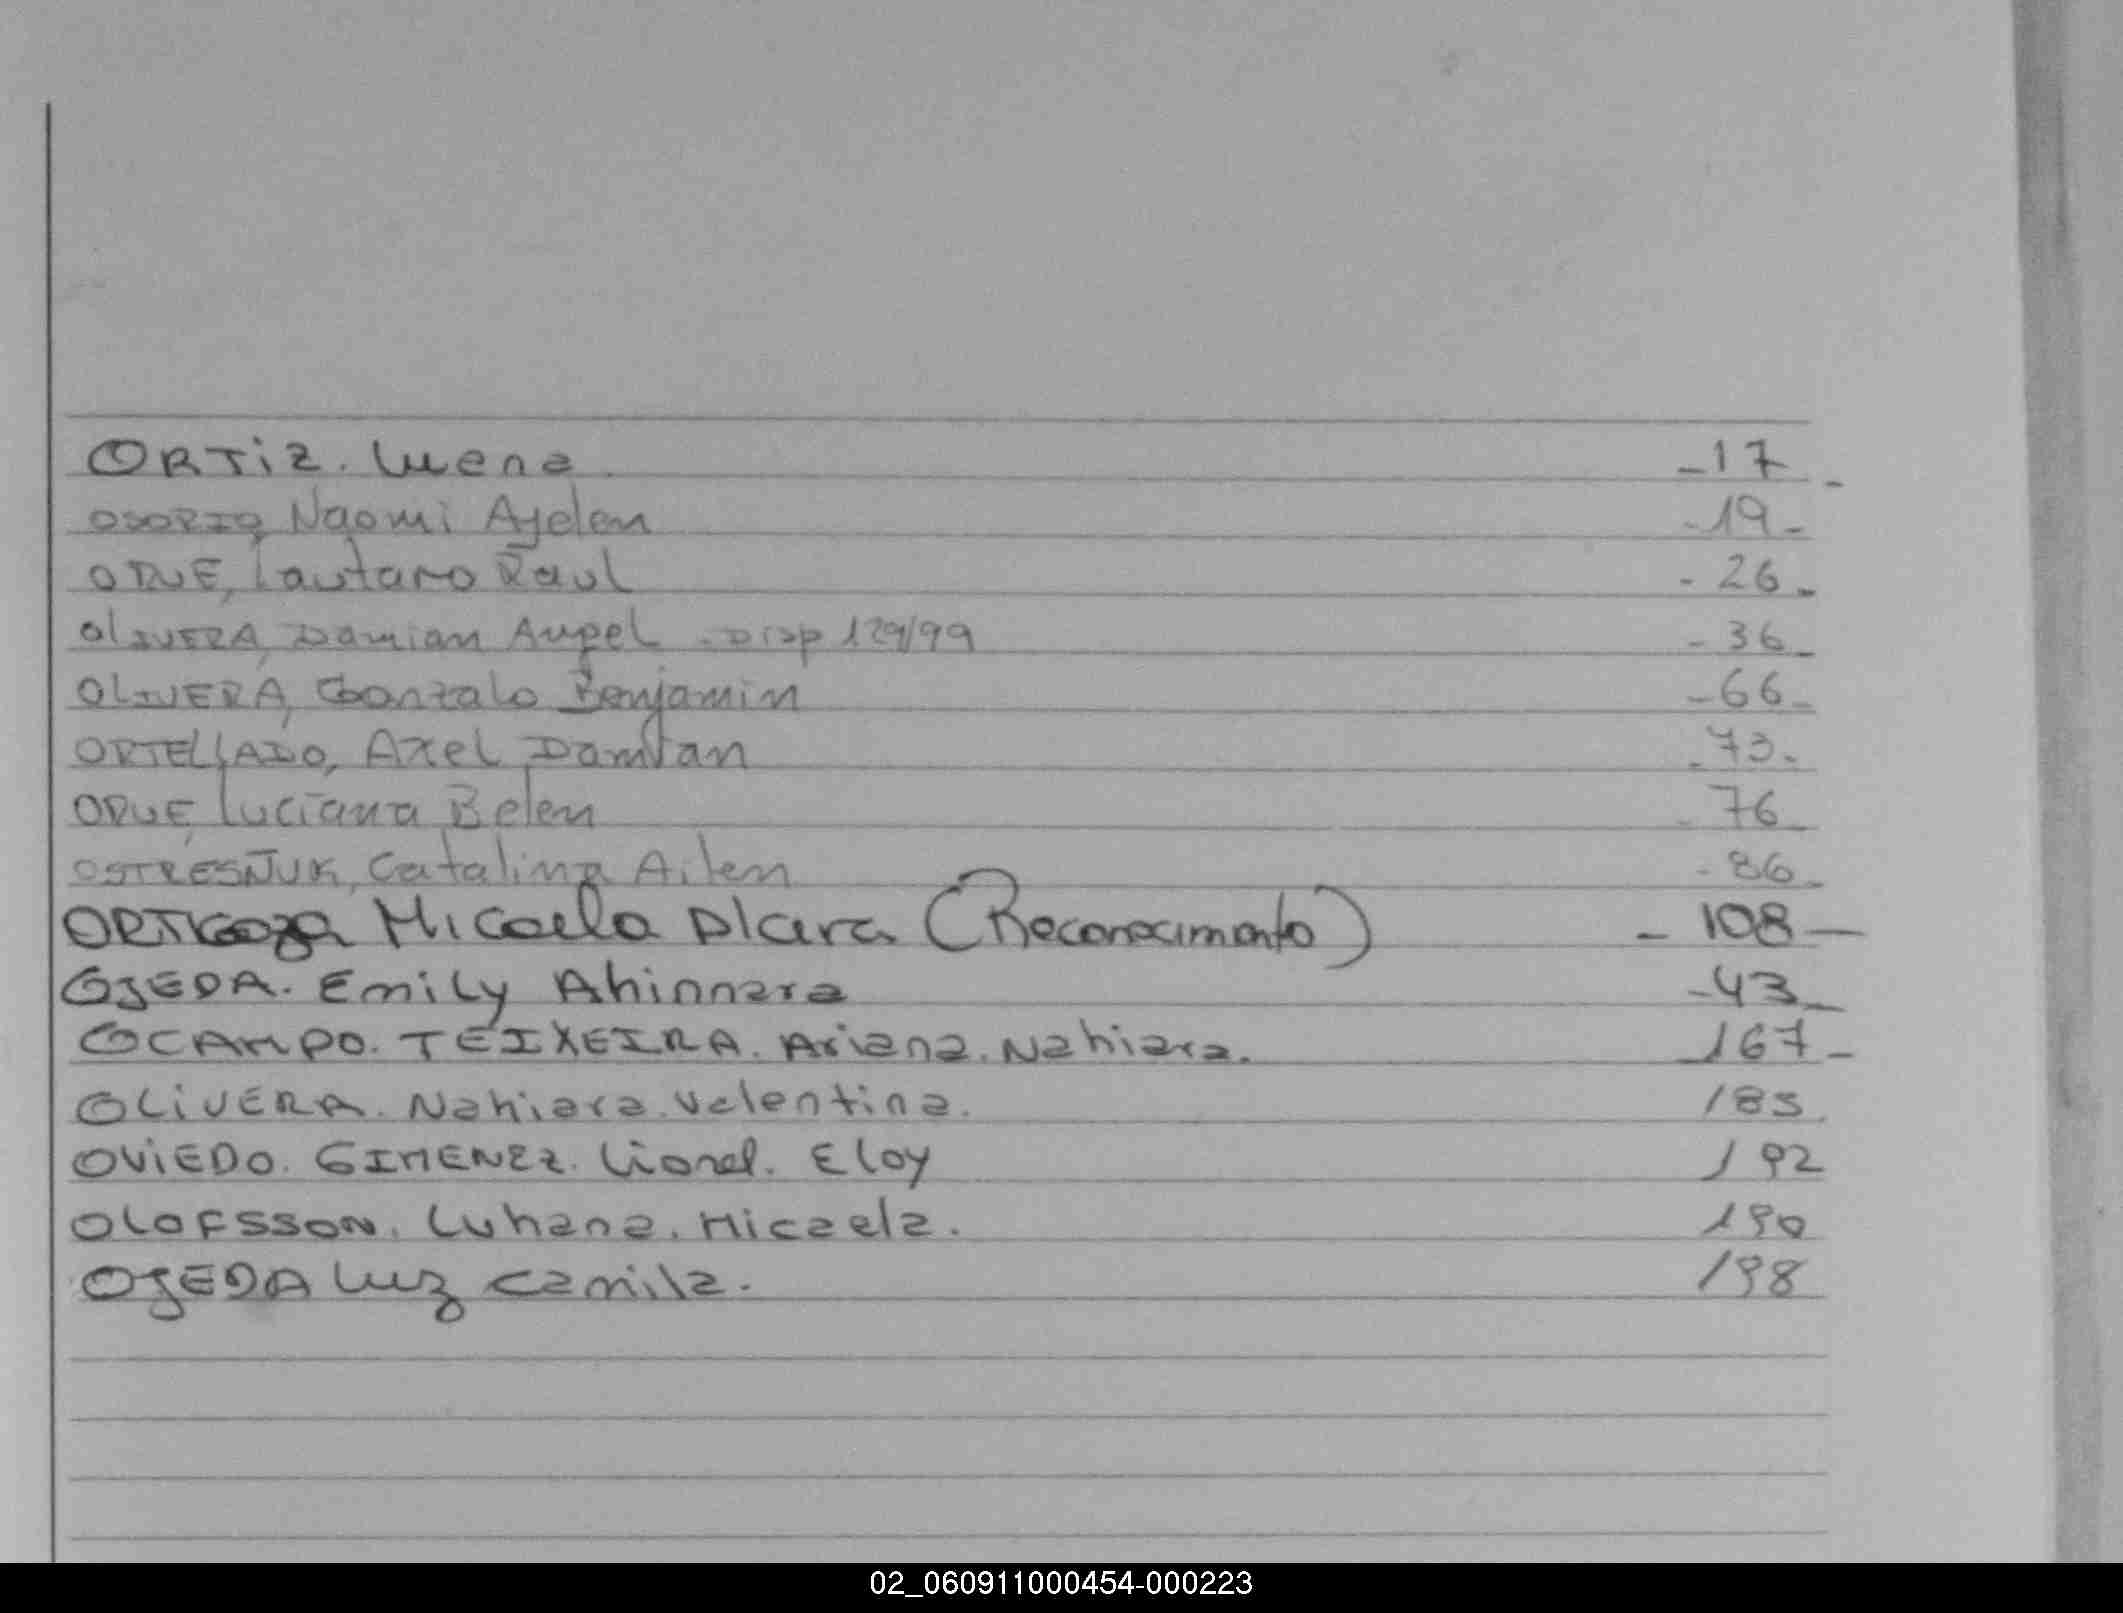 ORTIZ. Luena - 17 -
OSORIO, Naomi Ayelen - 19 -
ORUE, Lautaro Raul - 26 -
OLIVERA, Damian Angel - Disp 129/99 - 36 -
OLIVERA, Gonzalo Benjamin - 66 -
ORTELLADO, Axel Damian - 73 -
ORUE, Luciana Belen - 76 -
OSTRESNJUK, Catalina Ailen - 86 -
ORTIGOZA Micaela (Reconocimento) - 108 -
OJEDA. Emily Ahinnara - 43 -
OCAMPO. TEIXEIRA. Ariana. Nahiara. 167 -
OLIVERA. Nahiara. Valentina. 185
OVIEDO. GIMENEZ. Lionel. Eloy 192
OLOFSSON. Luhana. Micaela. 190
OJEDA Luz Camila. 198
02_060911000454-000223